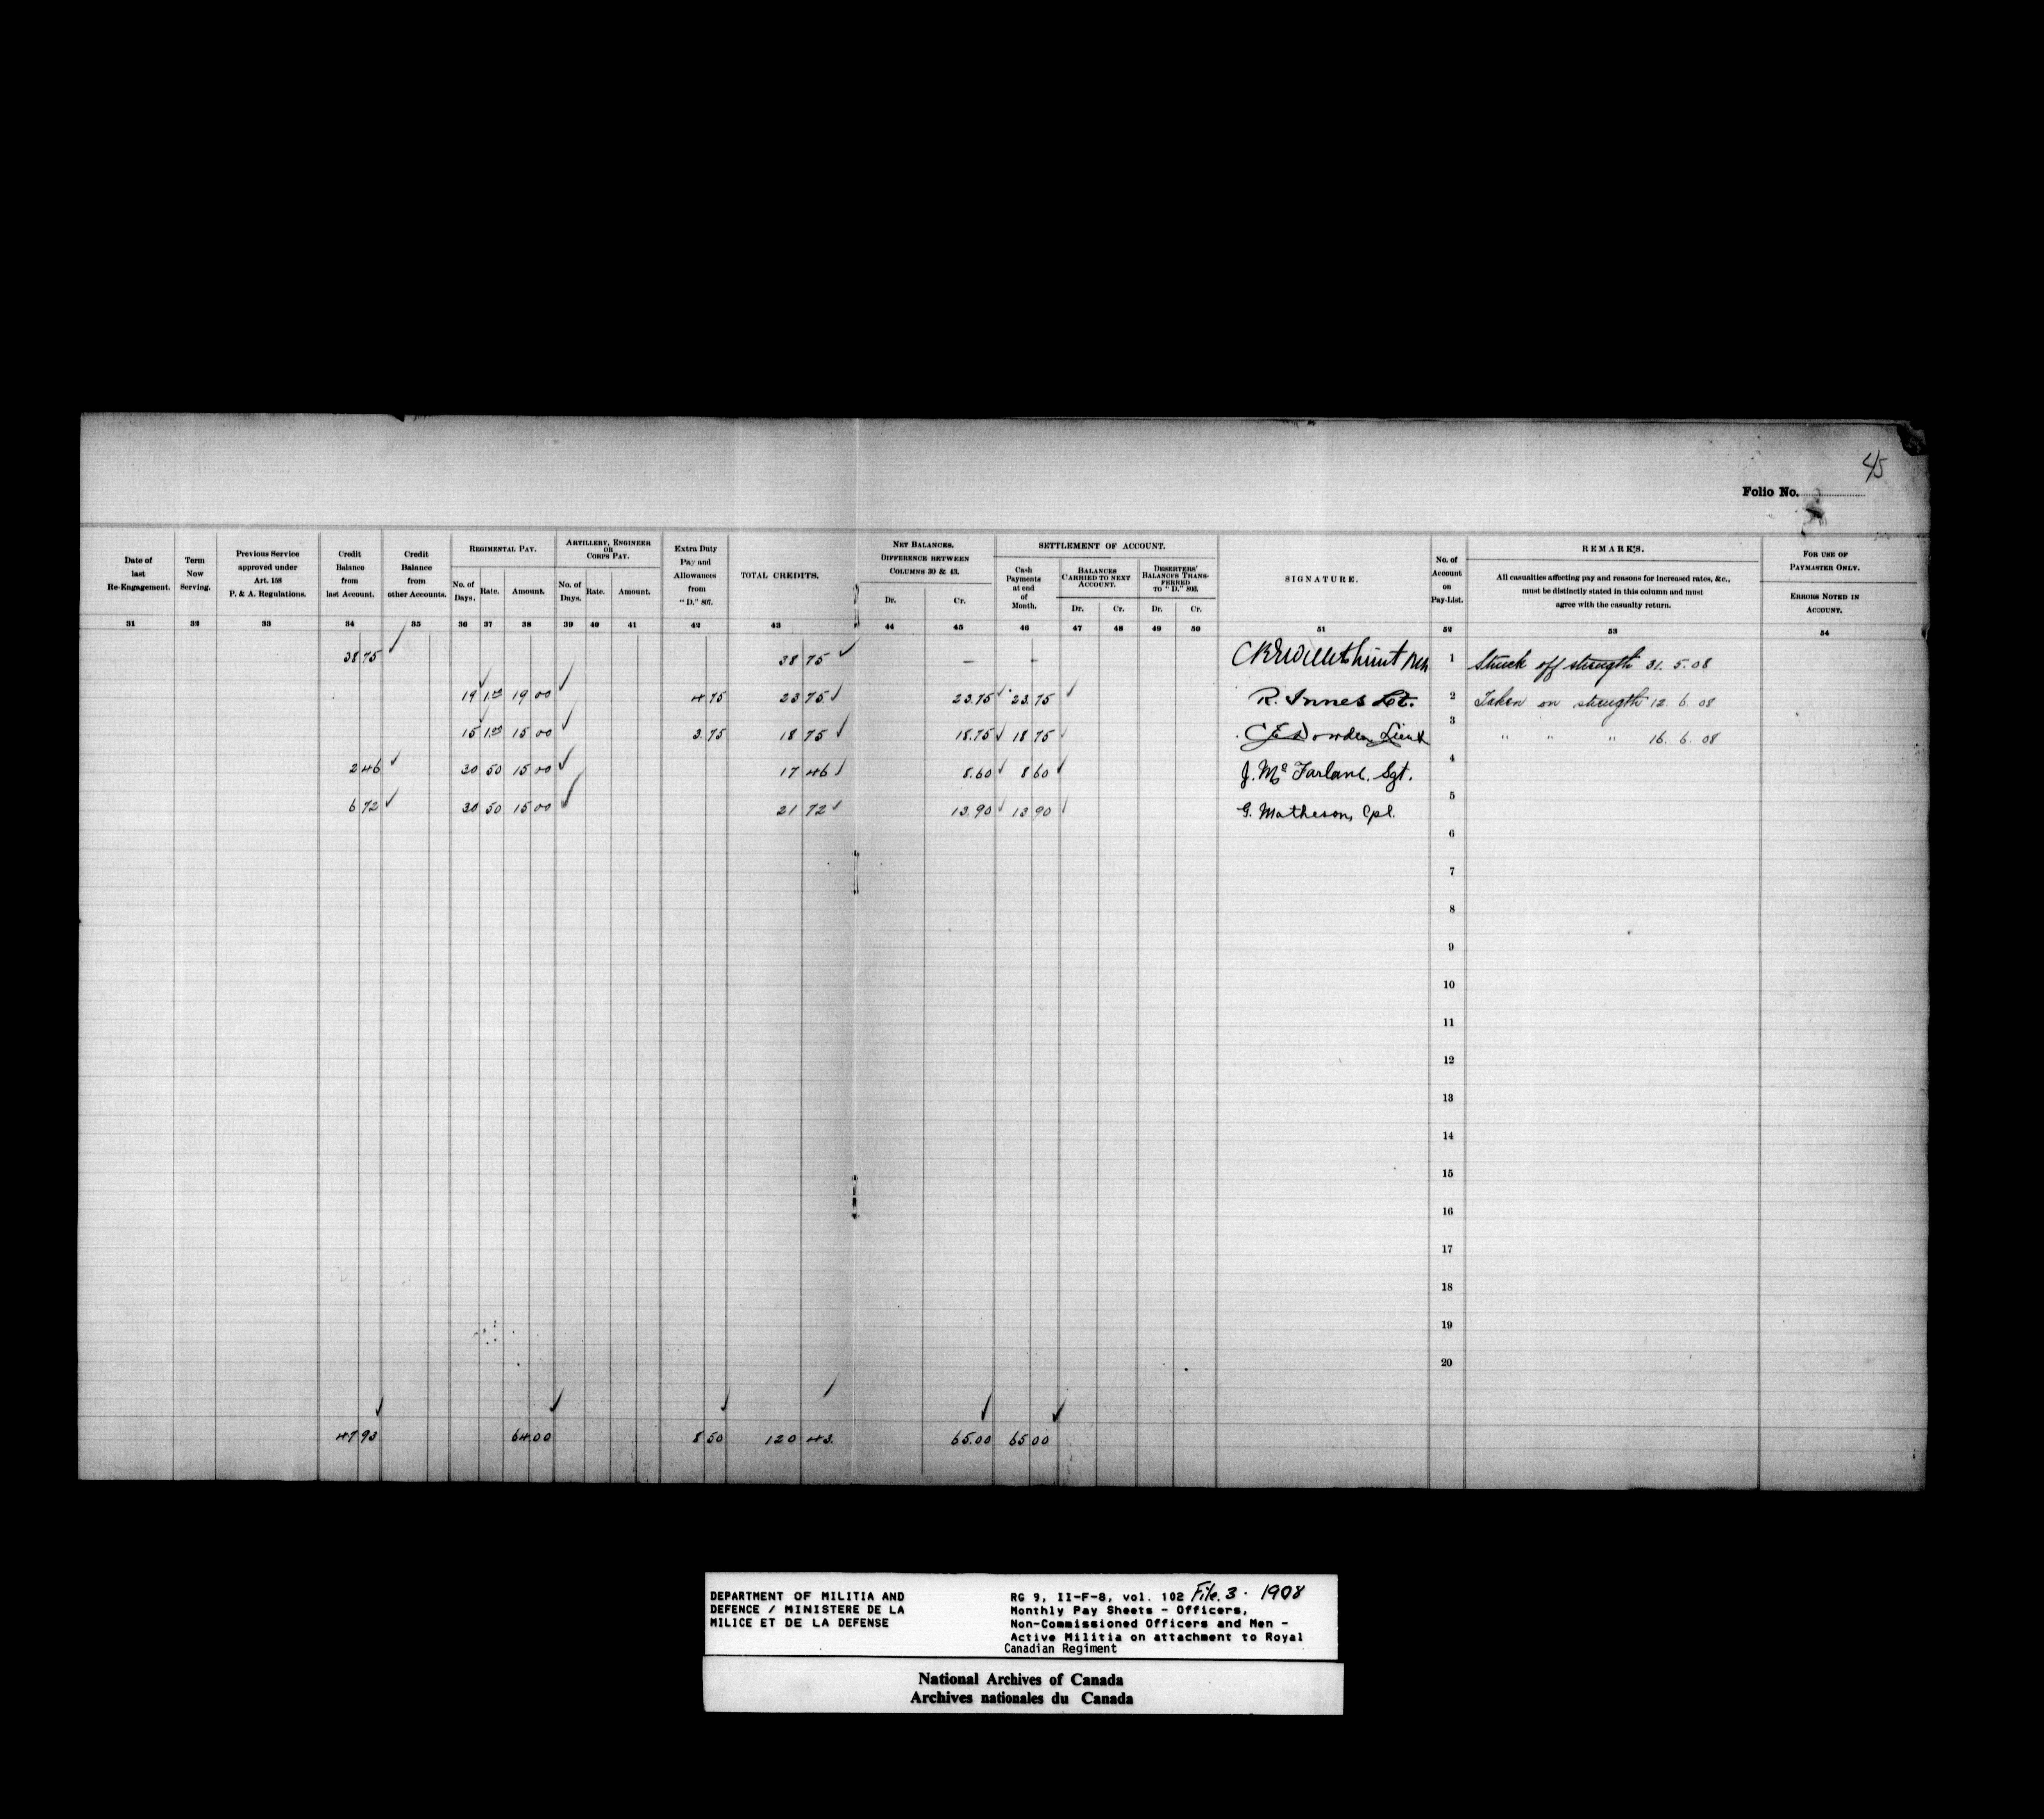 45
Folio No.
Date of last Re-Engagement. Term Now Serving. Previous Service approved under Art. 158 P. & A. Regulations. Credit Balance from last Account. Credit Balance from other Accounts. REGIMENTAL PAY. No. of Days. Rate. Amount. ARTILLERY, ENGINEER OR CORPS PAY. No. of Days. Rate. Amount. Extra Duty Pay and Allowances from "D." 807. TOTAL CREDITS. NET BALANCES. DIFFERENCE BETWEEN COLUMNS 30 & 43. Dr. Cr. SETTLEMENT OF ACCOUNT. Cash Payments at end of Month. BALANCES CARRIED TO NEXT ACCOUNT. Dr. Cr. DESERTERS' BALANCES TRANSFERRED TO "D." 803. Dr. Cr. SIGNATURE. No. of Account on Pay-List. REMARKS. All casualties affecting pay and reasons for increased rates, &c., must be distinctly stated in this column and must agree with the casualty return. FOR USE OF PAYMASTER ONLY. ERRORS NOTED IN ACCOUNT.
31 32 33 34 35 36 37 38 39 40 41 42 43 44 45 46 47 48 49 50 51 52 53 54
38 75 ✓ 38 75 ✓ – – 1 Struck off strength 31. 5. 08
19 1.00 19 00 ✓ 4 75 23 75 ✓ 23.75 ✓ 23.75 ✓ R. Innes Lt. 2 Taken on strength 12. 6. 08
15 1.00 15 00 ✓ 3.75 18 75 ✓ 18.75 ✓ 18 75 ✓ Lieut 3 " " " 16. 6. 08
2 46 ✓ 30 50 15 00 ✓ 17 46 ✓ 8.60 ✓ 8 60 ✓ J. McFarlane. Sgt. 4
6 72 ✓ 30 50 15 00 ✓ 21 72 ✓ 13.90 ✓ 13 90 ✓ G. Matheson, Cpl. 5
6
7
8
9
10
11
12
13
14
15
16
17
18
19
20
47 93 64.00 8 50 120 43. 65.00 65 00
DEPARTMENT OF MILITIA AND
DEFENCE / MINISTERE DE LA
MILICE ET DE LA DEFENSE
RG 9, II-F-8, vol. 102 File. 3. 1908
Monthly Pay Sheets - Officers,
Non-Commissioned Officers and Men -
Active Militia on attachment to Royal
Canadian Regiment
National Archives of Canada
Archives nationales du Canada